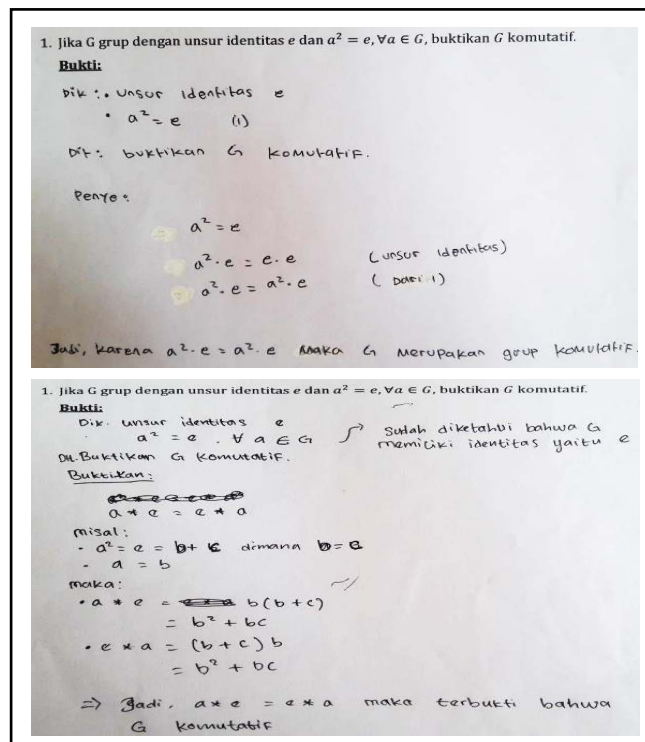 1. Jika G grup dengan unsur identitas e dan a² = e, ∀a ∈ G, buktikan G komutatif.
Bukti:
Dik : • unsur Identitas e
• a² = e (1)
Dit : buktikan G komutatif.
Penye :
a² = e
a² . e = e . e (unsur identitas)
a² . e = a² . e (Dari 1)
Jadi, karena a² . e = a² . e maka G merupakan grup komutatif.
1. Jika G grup dengan unsur identitas e dan a² = e, ∀a ∈ G, buktikan G komutatif.
Bukti:
Dik. unsur identitas e
a² = e . ∀ a ∈ G
Sudah diketahui bahwa G
memiliki identitas yaitu e
Dit. Buktikan G komutatif.
Buktikan :
a * e = e * a
misal :
- a² = e = b + c dimana b = e
- a = b
maka :
• a * e = b(b+c)
= b² + bc
• e * a = (b+c) b
= b² + bc
=> Jadi, a * e = e * a maka terbukti bahwa
G komutatif